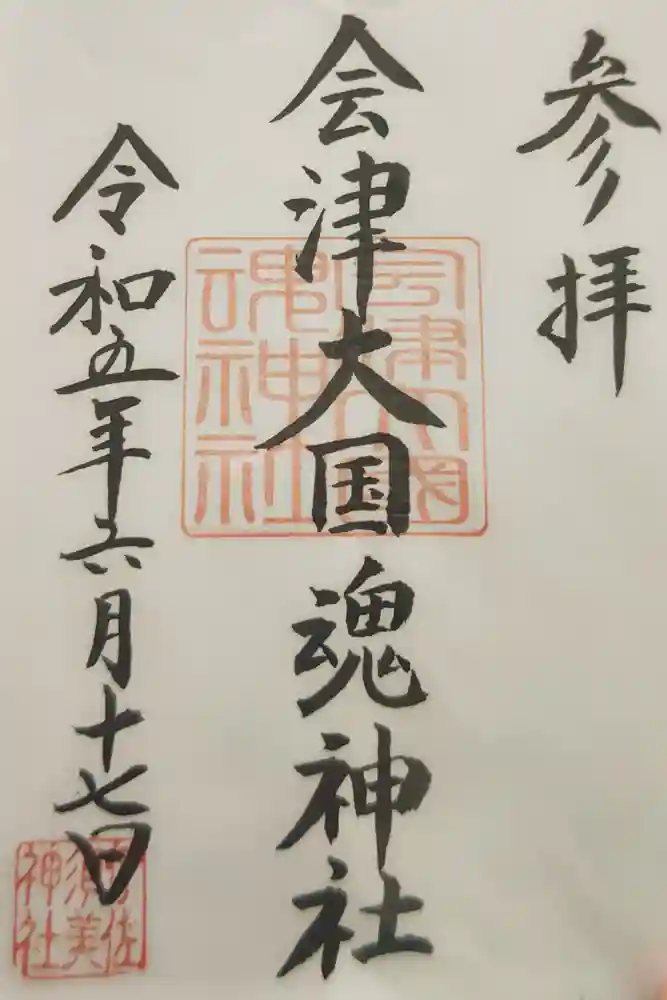 参拝
会津大国魂神社
会津大國
魂神社
令和五年六月十七日
佐
須美
神社